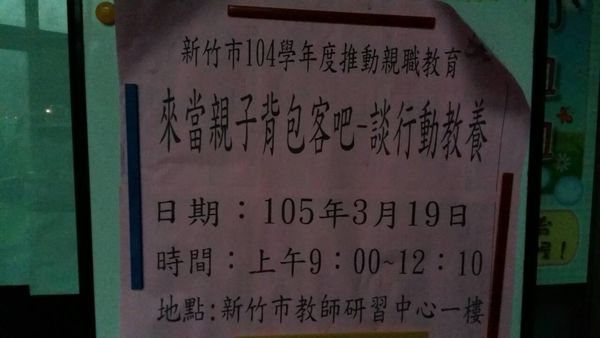 新竹市104學年度推動親職教育
來當親子背包客吧-談行動教養
日期：105年3月19日
時間：上午9：00~12：10
地點:新竹市教師研習中心一樓